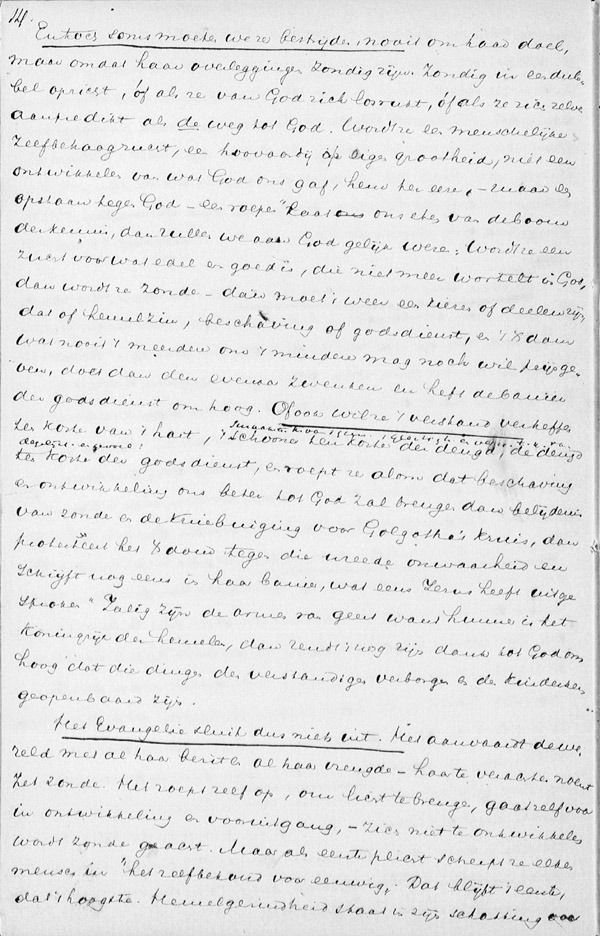 14.
En toch soms moeten we ze bestrijden, nooit om haar doel,
maar omdat haar overleggingen zondig zijn. Zondig in een dub-
bel opzicht, óf als ze van God zich losrukt, óf als ze zich zelve
aanpredikt als de weg tot God. Wordt ze een menschelijke
zelfbehaagzucht, een hoovaardij op eigen grootheid, niet een
ontwikkelen van wat God ons gaf, hem ter eere, - maar een
opstaan tegen God - een roepen "laat ons eten van de boom
der kennis, dan zullen we aan God gelijk wezen; wordt ze een
zucht voor wat edel en goed is, die niet meer wortelt in God,
dan wordt ze zonde - dan moet 't weer een kiezen of deelen zijn,
dat of hemelzin, beschaving of godsdienst, en 't Xdom
wat nooit 't meerdere om 't mindere mag noch wil prijsge-
ven, doet dan den evenaar zwenken en heft de banier
der godsdienst om hoog. Of ook wil ze 't verstand verheffen
ten koste van 't hart, 't schoone ten koste der deugd, de deugd
ten koste der godsdienst, en roept ze alom dat beschaving
en ontwikkeling ons beter tot God zal brengen dan belijdenis
van zonde en de kniebuiging voor Golgotha's kruis, dan
protesteert het Xdom tegen die wreede onwaarheid en
schrijft nog eens in haar banier, wat eens Jezus heeft uitge
sproken "Zalig zijn de armen van geest want hunner is het
Koningrijk der hemelen, dan zendt 't nog zijn dank tot God om
hoog dat die dingen den verstandigen verborgen en de kinderkens
geopenbaard zijn.
Het Evangelie sluit dus niets uit. Het aanvaardt de we-
reld met al haar bezit en al haar vreugde - haar te verachten noemt
het zonde. Het roept zelf op, om licht te brengen, gaat zelf voor
in ontwikkeling en vooruitgang, - zich niet te ontwikkelen
wordt zonde geacht. Maar als eerste plicht scherpt ze elken
mensch in "het zelfbehoud voor eeuwig". Dat blijft 't eerste,
dat 't hoogste. Hemelgezindheid staat in zijn schatting